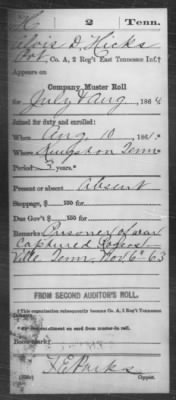 H 2 Tenn.
D. Hicks
Co. A, 2 Reg't East Tennessee Inf.†
Appears on
Company Muster Roll
for July & Aug, 1864
Joined for duty and enrolled:
When Aug. 10, 186
Where Kingston Tenn
Period 3 years.*
Present or absent Absent
Stoppage, $ 100 for
Due Gov't $ 100 for
Remarks: Prisoner of war
Captured
ville Tenn, Nov 6" 63
FROM SECOND AUDITOR'S ROLL.
†This organization subsequently became Co. A, 2 Reg't Tennessee
*See enrollment on card from muster-in roll.
Book mark:
Copyist.